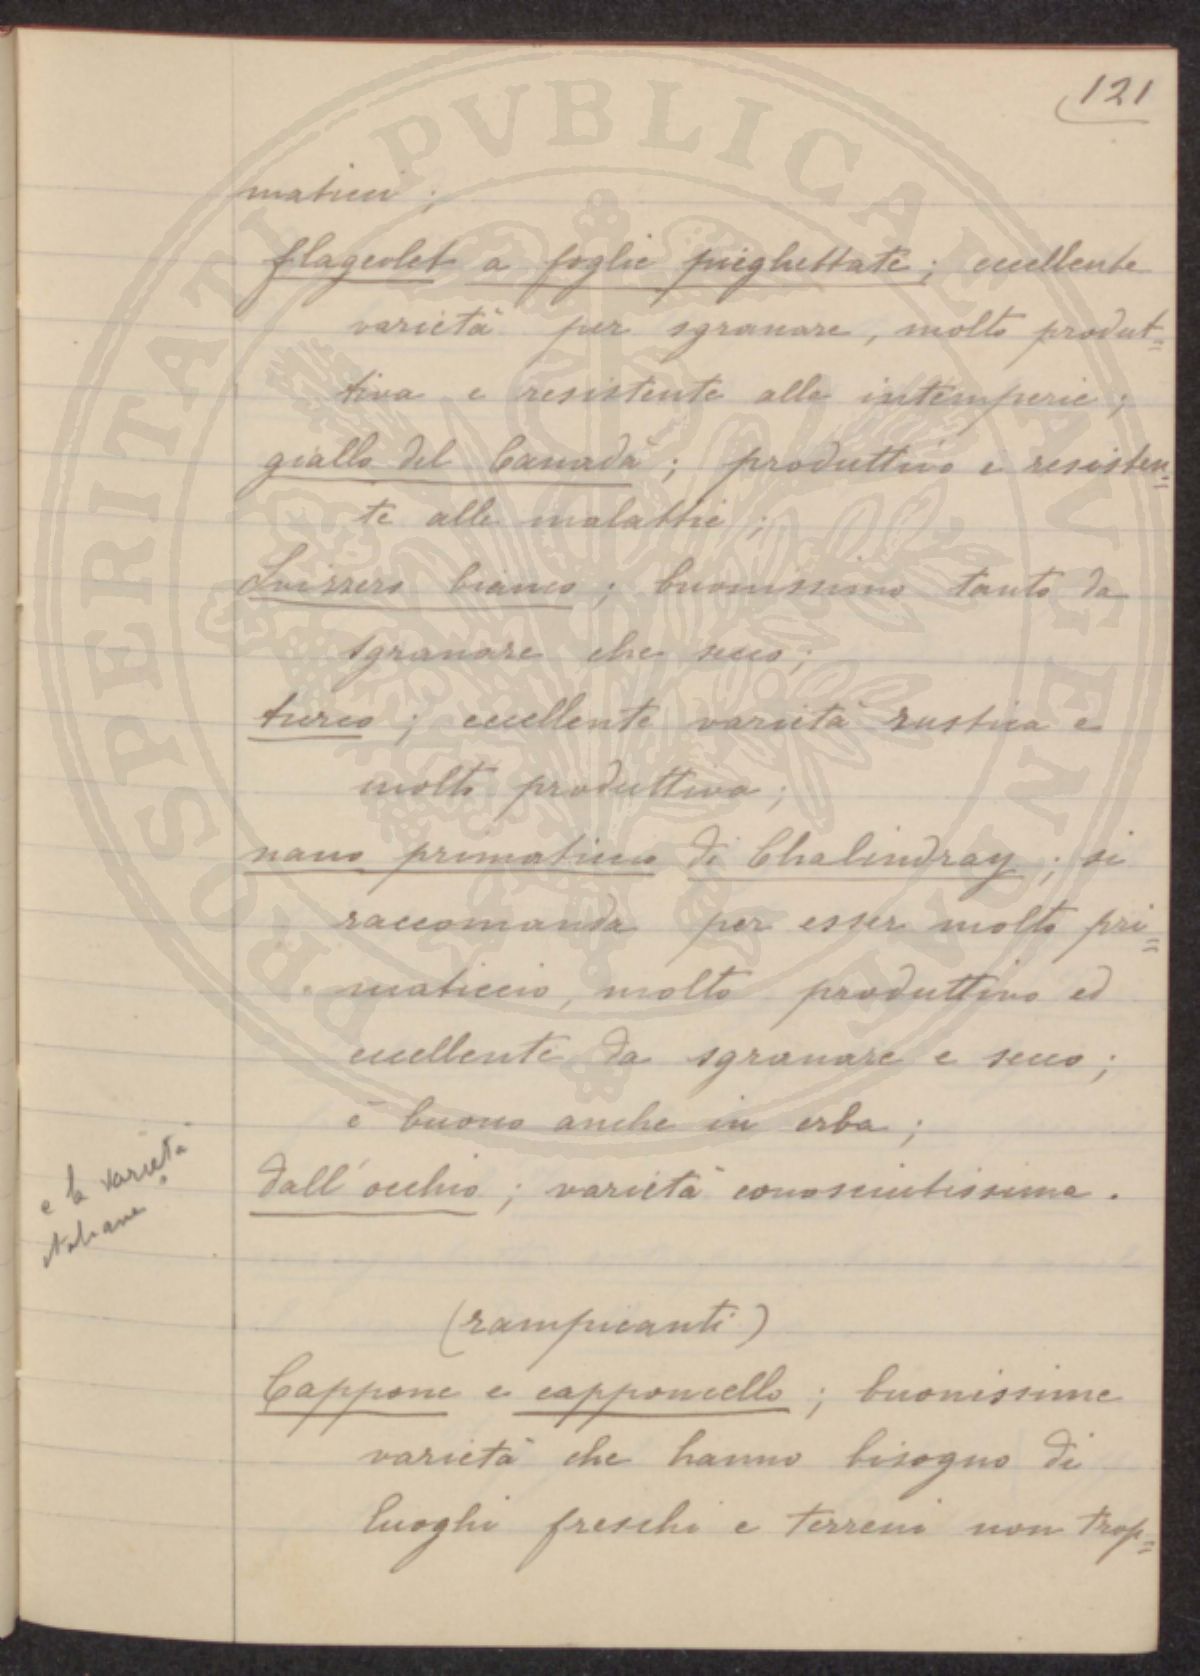 121
maticci;
flageolet a foglie pieghettate; eccellente
varietà per sgranare, molto produt=
tiva e resistente alle intemperie;
giallo del Canadà; produttivo e resisten=
te alle malattie;
Svizzero bianco; buonissimo tanto da
sgranare che secco;
turco; eccellente varietà rustica e
molto produttiva;
nano primaticcio di Chalindray; si
raccomanda per esser molto pri=
maticcio, molto produttivo ed
eccellente da sgranare e secco;
è buono anche in erba;
dall'occhio; varietà conosciutissima.
e la varietà
italiana
(rampicanti)
Cappone e capponcello; buonissime
varietà che hanno bisogno di
luoghi freschi e terreni non trop=
PROSPERITATI PVBLICAE AVGENDAE